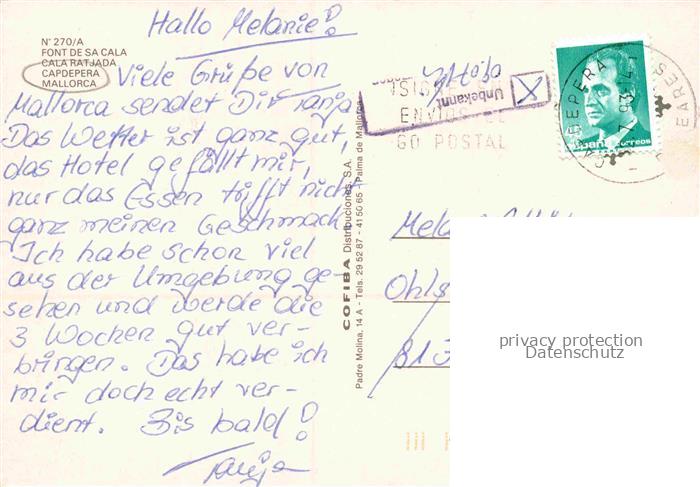 Hallo Melanie!
N° 270/A
FONT DE SA CALA
CALA RATJADA
CAPDEPERA
MALLORCA
Viele Grüße von
Mallorca sendet Dir Tanja.
Das Wetter ist ganz gut,
das Hotel gefällt mir,
nur das Essen trifft nicht
ganz meinen Geschmack.
Ich habe schon viel
aus der Umgebung ge-
sehen und werde die
3 Wochen gut ver-
bringen. Das habe ich
mir doch echt ver-
dient. Bis bald!
Tanja
COFIBA Distribuciones, S.A.
Padre Molina, 14 A - Tels. 29 52 87 - 41 50 65 - Palma de Mallorca
Unbekannt
ENVIOS
GO POSTAL
CAPDEPERA
correos
privacy protection
Datenschutz